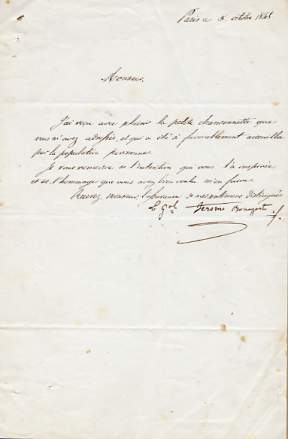 Paris le 8 octobre 1848
Monsieur,
J'ai reçu avec plaisir la petite chansonnette que
vous m'avez adressée, et qui a été si favorablement accueillie
par la population parisienne.
Je vous remercie de l'intention qui vous l'a inspirée
et de l'hommage que vous avez bien voulu m'en faire.
Recevez, Monsieur, l'assurance de mes sentimens distingués
Le Gal Jérôme Bonaparte